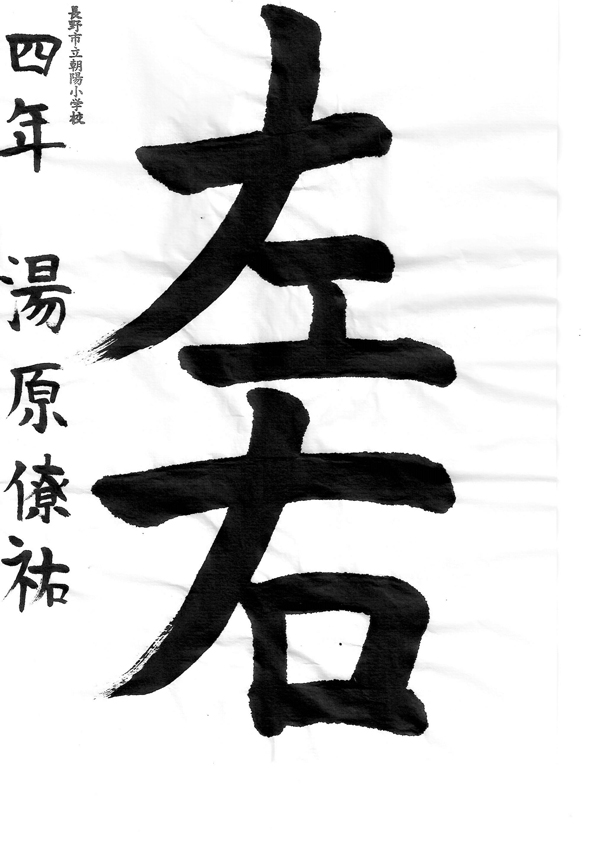 左右
長野市立朝陽小学校
四年 湯原僚祐